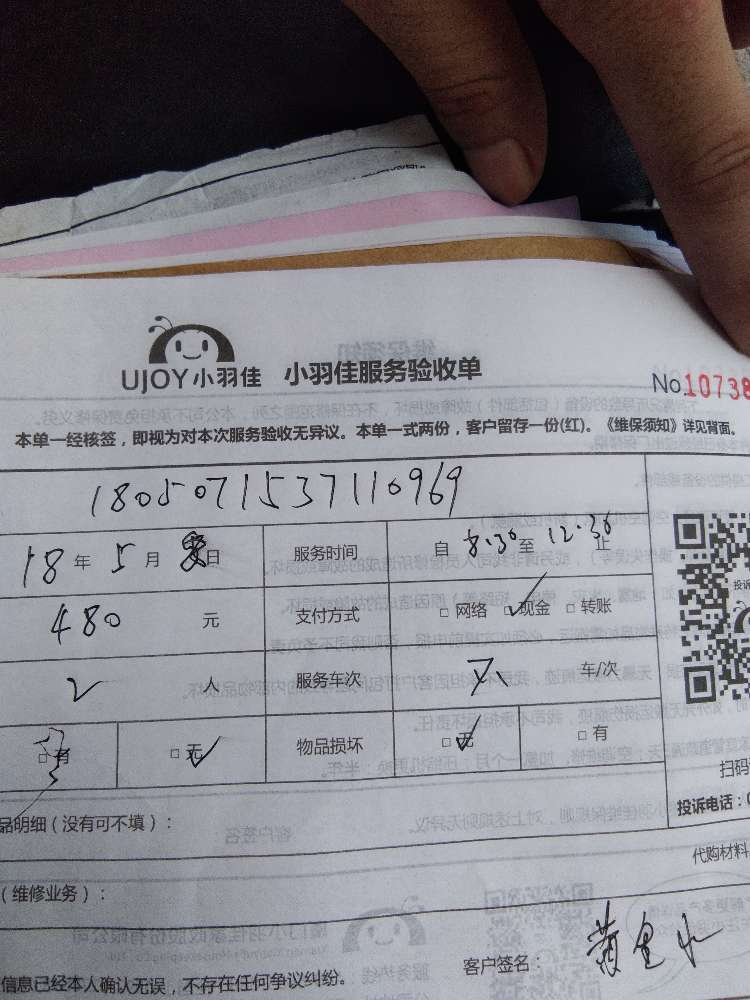 UJOY小羽佳 小羽佳服务验收单
No.10738
本单一经核签，即视为对本次服务验收无异议。本单一式两份，客户留存一份(红)。《维保须知》详见背面。
1805071537110969
18年5月 日 服务时间 自 8:30至 12:30止
480 元 支付方式 □网络 □现金 □转账
2 人 服务车次 车/次
□有 □无 物品损坏 □无 □有
扫码
投诉电话：0
品明细（没有可不填）：
代购材料
（维修业务）：
客户签名：
信息已经本人确认无误，不存在任何争议纠纷。